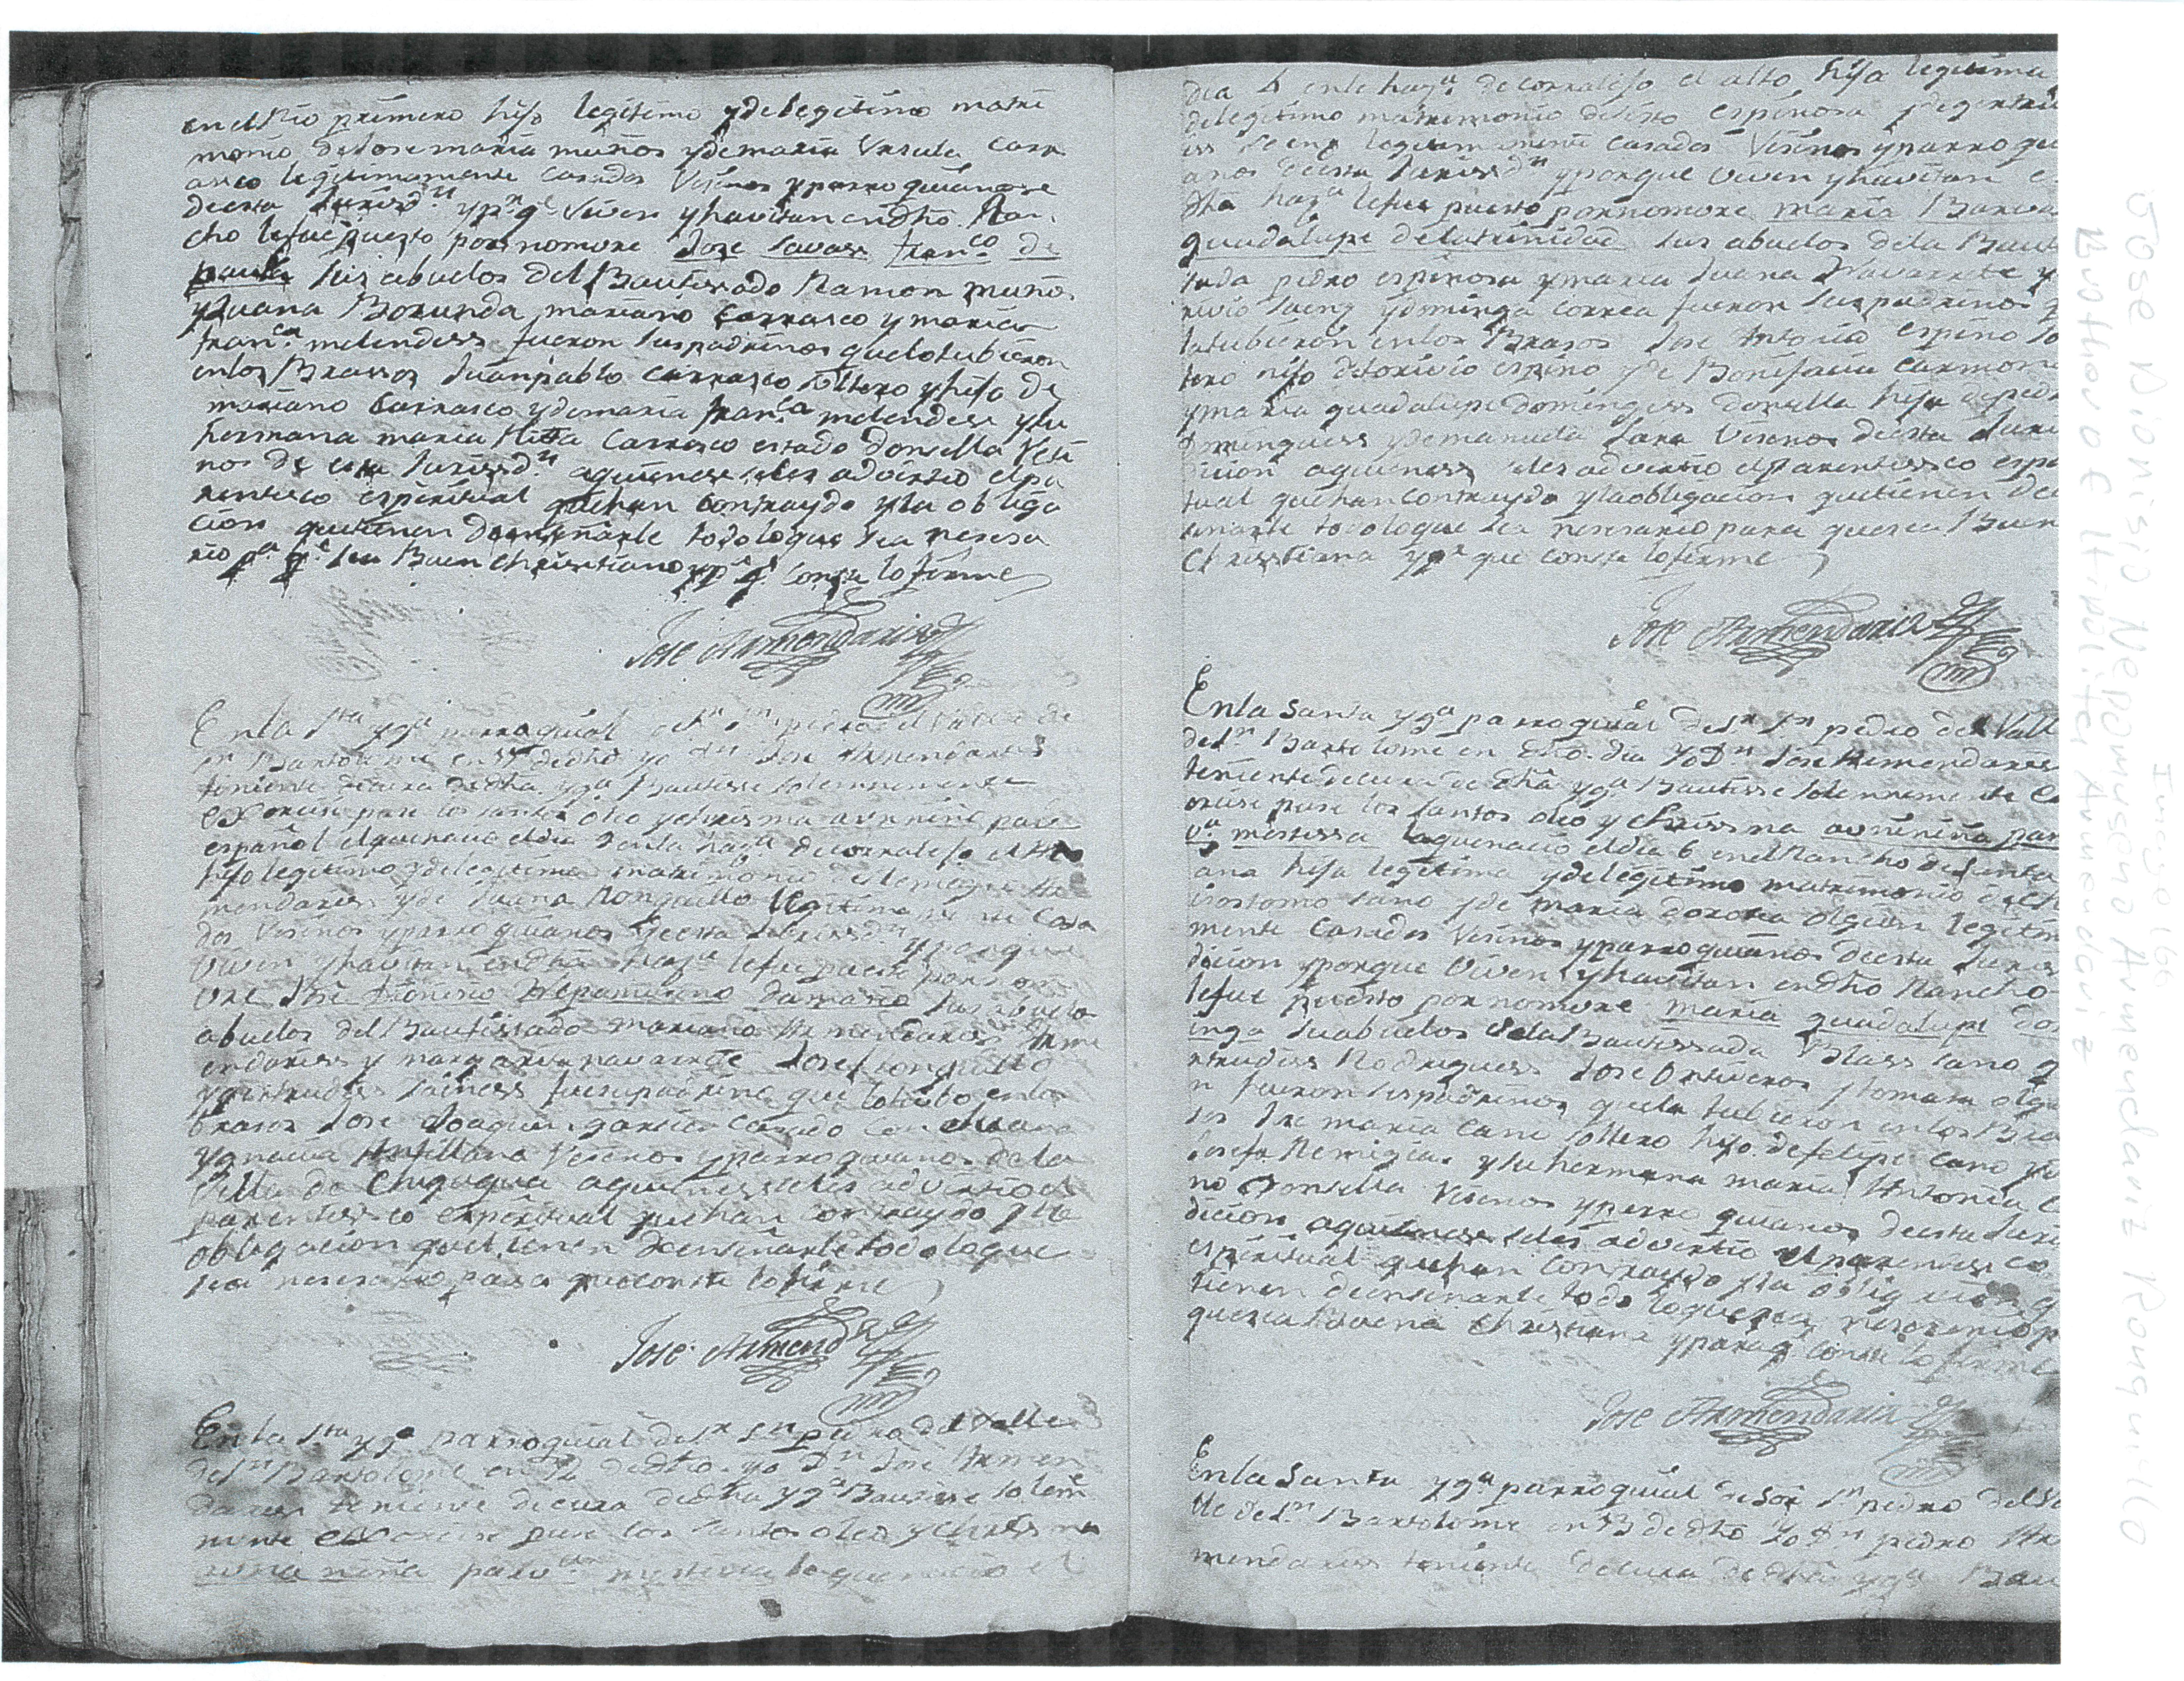 en el Rio primero hijo legitimo y de legitimo matri
monio de Jose maria muños y de maria Ursula Carr
asco legitimamente casados Vesinos y parroquianos
de esta Jurisdn y pr qe viven y havitan en dho Ran
cho le fue puesto por nomvre Jose Franco de
paula sus abuelos del Bautissado Ramon muños
y Juana Borunda mariano Carrasco y maria
Franca melendess fueron sus padrinos que lo tubieron
en los Brassos Juan pablo Carrasco soltero y hijo de
mariano Carrasco y de maria Franca melendess y su
hermana maria Ritta Carrasco estado donsella Vesi
nos de esta Jurissdn aquieness se les advirtio el pa
rentisco espiritual que han contraydo y la obliga
cion que tienen de enseñarle todo lo que sea nesesa
rio pa qe sea Buen christiano y pa qe conste lo firme
Jose Armendariz
En la Sta yga parroquial de Sr Sn pedro del Valle de
Sn Bartolome en de dho yo Dn Jose Armendaress
teniente de cura de dha yga Bautisse solemnemente
exorcise puse los santos oleo y chrisma a un niño
español el que nacio el dia en la haza de corralejo el alto
hijo legitimo y de legitimo matrimonio de Ar
mendaress y de Juana Ronquillo legitimamente casa
dos Vesinos y parroquianos de esta Jurissdn y porque
viven y havitan en dha haza le fue puesto por nom
vre Jose Nepomuseno sus
abuelos del Bautissado mariano Armendaress Arm
endaress y margarita navarrete Josef Ronquillo
y gertrudess saeness fue su padrino que lo tubo en los
brasos Jose Joaquin garcia casado con Juana
Ygnacia Vesinos y parroquianos de la
Villa de Chiguagua aquienes se les advirtio el
parentissco espiritual que han contraydo y la
obligacion que tienen de enseñarle todo lo que
sea nesesario para que conste lo firme
Jose Armend
En la Sta yga parroquial de Sr Sn pedro del Valle
de Sn Bartolome en 12 de dho yo Dn Jose Armen
daress teniente de cura de dha yga Bautisse solem
mente exorcise puse los santos oleo y chrissma
a una niña mestissa la que nacio el
dia 4 en la haza de corralejo el alto hija legitima
de legitimo matrimonio de espinosa y de gertru
iss Saenz legitimamente casados Vesinos y parroqui
anos de esta Jurissdn y porque viven y havitan e
dha haza le fue puesto por nomvre maria
guadalupe de la trinidad sus abuelos de la Baut
isada pedro espinosa y maria Juana Navarrete y
rivio Saenz y dominga Correa fueron sus padrinos q
la tubieron en los Brasos Jose Antonio espino so
tero hijo de torivio espino y de Bonifacia Carmon
y maria guadalupe dominguess donsella hija de pedr
Dominguess y de manuela Lara Vesinos de esta Juri
dicion aquieness seles advirtio el parentissco espi
tual que han contraydo y la obligacion que tienen de e
senarle todo lo que sea nesesario para que sea Buen
Christiana y pa que conste lo firme
Jose Armendariz
En la Santa yga parroquial de Sr Sn pedro del Vall
de Sn Bartolome en dho dia Yo Dn Jose Armendaress
teniente de cura de dha yga Bautisse solemnemente e
orcise puse los santos oleo y chrissma a una niña par
va mestissa la que nacio el dia 6 en el Rancho de Santa
ana hija legitima y de legitimo matrimonio de Ch
isostomo Cano y de maria dorotea olguin legitim
mente casados Vesinos y parroquianos de esta Juris
dicion y porque viven y havitan en dho Rancho
le fue puesto por nomvre maria guadalupe do
inga su abuelos de la Bautissada Blass Cano y
rtrudiss Rodriguess Jose y tomasa olgui
n fueron sus padrinos que la tubieron en los Bra
sos Jse maria Cano soltero hijo de felipe Cano y
Josefa Remigia y su hermana maria Antonia C
no Donsella Vesinos y parroquianos de esta Juri
dicion aquieness seles advirtio el parentessco
espiritual que han contraydo y la obligacion q
tienen de ensenarle todo lo que sea nesesario p
que sea buena Christiana y para q conste lo firme
Jose Armendariz
En la Santa yga parroquial de Sor Sn pedro del Va
lle de Sn Bartolome en 13 de dho Yo Dn pedro Ar
mendaress teniente de cura de dha yga Bau
Image 166
Jose Dionisio Nepomuseno Armendariz Ronquillo
Brother of Hipolito Armendariz